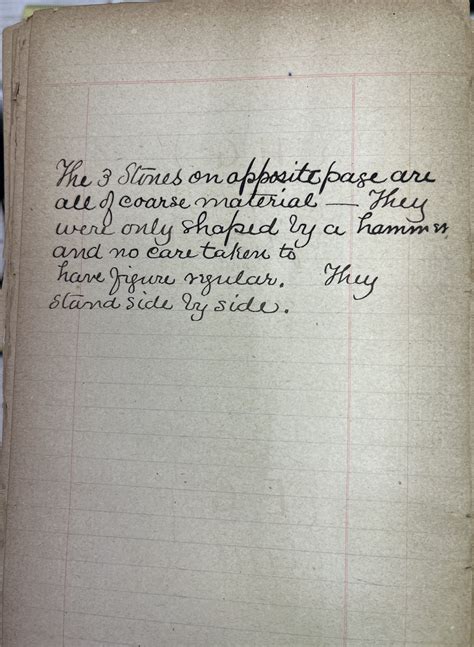 The 3 Stones on opposite page are
all of coarse material — They
were only shaped by a hammer
and no care taken to
have figure regular. They
stand side by side.